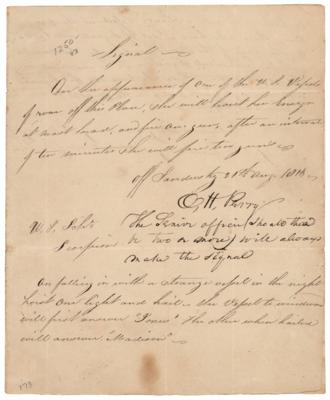 1250
Signal
On the appearance of one of the U. S. Vessels
of war off this Place, she will hoist her Ensign
at mast head, and fire One gun, after an interval
of ten minutes she will fire two guns
off Sandusky 21st Aug. 1813
O H Perry
U. S. Sch'r
Scorpion
The Senior officer (should there
be two or more) will always
make the signal
On falling in with a strange vessel in the night
hoist One light and hail - the Vessel to windward
will first answer "Jones" the other when hailed
will answer "Madison"
173